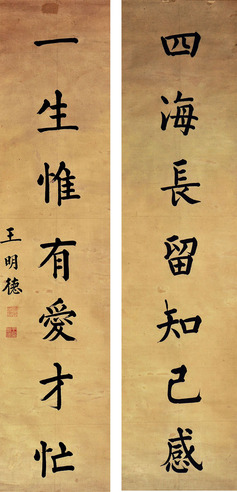 四海長留知己感
一生惟有愛才忙
王明德